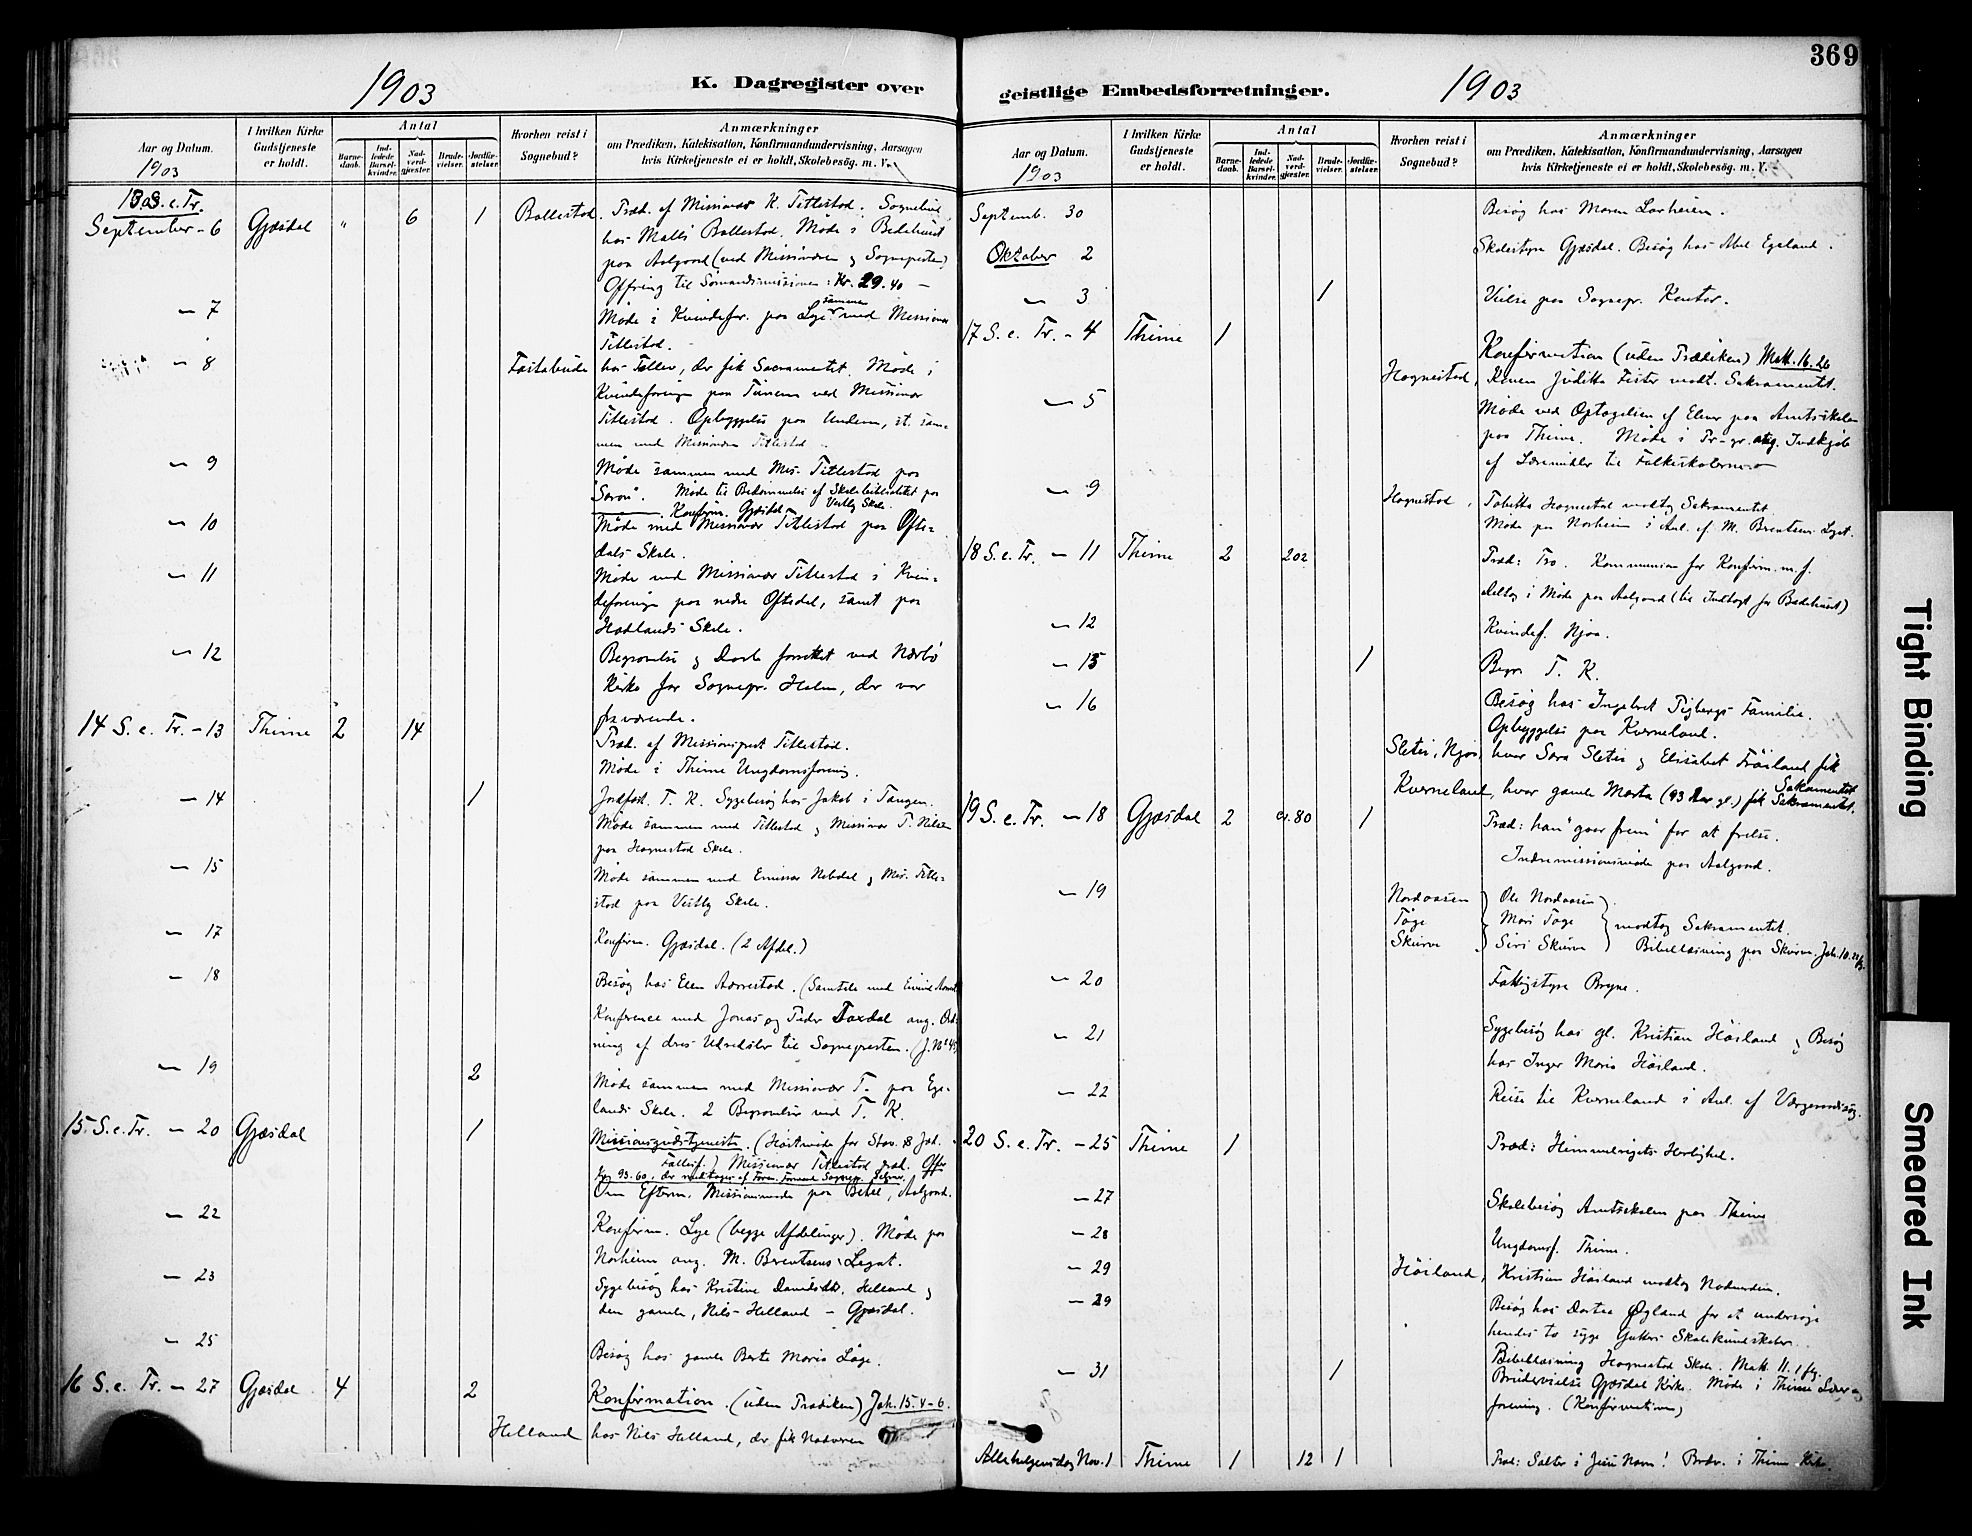 369
1903
K. Dagregister over
Aar og Datum.
1903
I hvilken Kirke
Gudstjeneste
er holdt.
Antal
Barne-
daab.
Ind-
ledede
Barsel-
kvinder.
Nad-
verd-
gjæster.
Brude-
vielser.
Jordfæ-
stelser.
Hvorhen reist i
Sognebud?
Anmærkninger
om Prædiken, Katekisation, Konfirmandundervisning, Aarsagen
hvis Kirketjeneste ei er holdt, Skolebesög. m. V.
13 S. e. Tr.
September - 6 Gjæsdal " 6 1 Bollestad. Præd. af Missionær K. Titlestad. Sognebud
hos Malli Bollestad. Møde i Bedehuset
paa Aalgaard (ved Missionæren og Sognepresten)
Offring til Sømandsmissionen: Kr. 29.40 —
— 7 Møde i Kvindefor. paa Lye sammen med Missionær
Titlestad.
— 8 hos Faller, der fik Sacramentet. Møde i
Kvindeforening paa Tunem ved Missionær
Titlestad. Opbyggelse paa Undem, st. sam-
men med Missionæren Titlestad
— 9 Møde sammen med Mis. Titlestad paa
"Saron". Møde til Bedømmelse af Skolebiblioteket paa
Vestly Skole.
Konfirm. Gjæsdal
— 10 Møde med Missionær Titlestad paa Ofte-
dals Skole.
— 11 Møde med Missionær Titlestad i Kvin-
deforening paa nedre Oftedal, samt paa
Hadlands Skole.
— 12 Begravelse og Daab forrettet ved Nærbø
Kirke for Sognepr. Holm, der var
fraværende.
14 S. e. Tr. - 13 Thime 2 14 Præd. af Missionsprest Titlestad.
Møde i Thime Ungdomsforening.
— 14 1 Jordfæst. T. K. Sygebesøg hos Jakob i Tangen.
Møde sammen med Titlestad og Missionær T. Nilsen
paa Hognestad Skole.
— 15 Møde sammen med Emissær Nebdal og Mis. Title-
stad paa Vestly Skole.
— 17 Konfirm. Gjæsdal. (2 Afdel.)
— 18 Besøg hos Elen Aarrestad. (Samtale med Eivind
Konference med Jonas og Peder Taxdal ang. Ord-
ning af deres Udredsler til Sognepresten. (J. No 45)
— 19 2 Møde sammen med Missionær T. paa Ege-
lands Skole. 2 Begravelser ved T. K.
15. S. e. Tr. — 20 Gjæsdal 1 Missionsgudstjeneste. (Høstmøde for Stav. & Jæd.
Fællesf.) Missionær Titlestad præd. Offr.
Kr. 93.60, der modtages af Foren. Formand Sognepr.
Om Efterm. Missionsmøde paa Betel, Aalgaard.
— 22 Konfirm. Lye (begge Afdelinger). Møde paa
Norheim ang. M. Brentsens Legat.
— 23 Sygebesøg hos Kristine Danielsdtr. Helland og
den gamle, Nils Helland — Gjæsdal.
— 25 Besøg hos gamle Berte Maria Lage.
16 S. e. Tr. — 27 Gjæsdal 4 2 Konfirmation. (uden Prædiken) Joh. 15. 4-6.
Helland hos Nils Helland, der fik Nadveren
geistlige Embedsforretninger.
1903
Aar og Datum.
1903
I hvilken Kirke
Gudstjeneste
er holdt.
Antal
Barne-
daab.
Ind-
ledede
Barsel-
kvinder.
Nad-
verd-
gjæster.
Brude-
vielser.
Jordfæ-
stelser.
Hvorhen reist i
Sognebud?
Anmærkninger
om Prædiken, Katekisation, Konfirmandundervisning, Aarsagen
hvis Kirketjeneste ei er holdt, Skolebesög. m. V.
Septemb. 30 Besøg hos Maren Larheien.
Oktober 2 Skolestyre Gjæsdal. Besøg hos Abel Egeland.
— 3 1 Vielse paa Sognepr. Kontor.
17 S. e. Tr. - 4 Thime 1 Konfirmation (uden Prædiken) Matt. 16. 26
Hognestad, Konen Juditta Fister modt. Sakramentet.
— 5 Møde ved Optagelsen af Elever paa Amtsskolen
paa Thime. Møde i Pr-gr. ang. Indkjøb
af Læremidler til Folkeskolerne
— 9 Hognestad, Tabitta Hognestad modtog Sakramentet
Møde paa Norheim i Anl. af M. Brentsens Legat.
18 S. e. Tr. — 11 Thime 2 202 Præd: Tro. Kommunion for Konfirm. m. f.
deltog i Møde paa Aalgaard (til Indtægt for Bedehuset)
— 12 Kvindef. Njaa.
— 15 1 Begr. T. K.
— 16 Besøg hos Ingebret Tigbergs Familie.
Opbyggelse paa Kverneland.
Sletei, Njaa, hvor Sara Sletei og Elisabet Frøiland fik
Sakramentet
Kverneland, hvor gamle Marta (93 Aar gl.) fik Sakramentet.
19 S. e. Tr. — 18 Gjæsdal 2 80 1 Præd: han "gaar frem" for at frelse.
Indremissionsmøde paa Aalgaard.
— 19 Nordaasen Ole Nordaasen
Tage Mari Tage modtog Sakramentet.
Skurve Siri Skurve Bibellæsning paa Skurve. Joh. 10. 22 fg.
— 20 Fattigstyre Bryne.
— 21 Sygebesøg hos gl. Kristian Høiland og Besøg
hos Inger Maria Høiland.
— 22 Reise til Kverneland i Anl. af Værgeraadssag.
20 S. e. Tr. — 25 Thime 1 Præd: Himmelrigets Herlighed.
— 27 Skolebesøg Amtsskolen paa Thime
— 28 Ungdomsf. Thime.
— 29 Høiland, Kristian Høiland modtog Nadverden.
— 29 Besøg hos Dortea Øgland for at undersøge
hendes to syge Gutters Skolekundskaber.
Bibellæsning Hognestad Skole. Matt. 11. 1 fg.
— 31 1 Brudevielse Gjæsdal Kirke. Møde i Thime Lærer-
forening. (Konfirmation)
Allehelgensdag Nov. 1 Thime 1 12 1 Præd: Salter i Jesu Navn! Brdv. i Thime Kirke.
Tight Binding
Smeared Ink